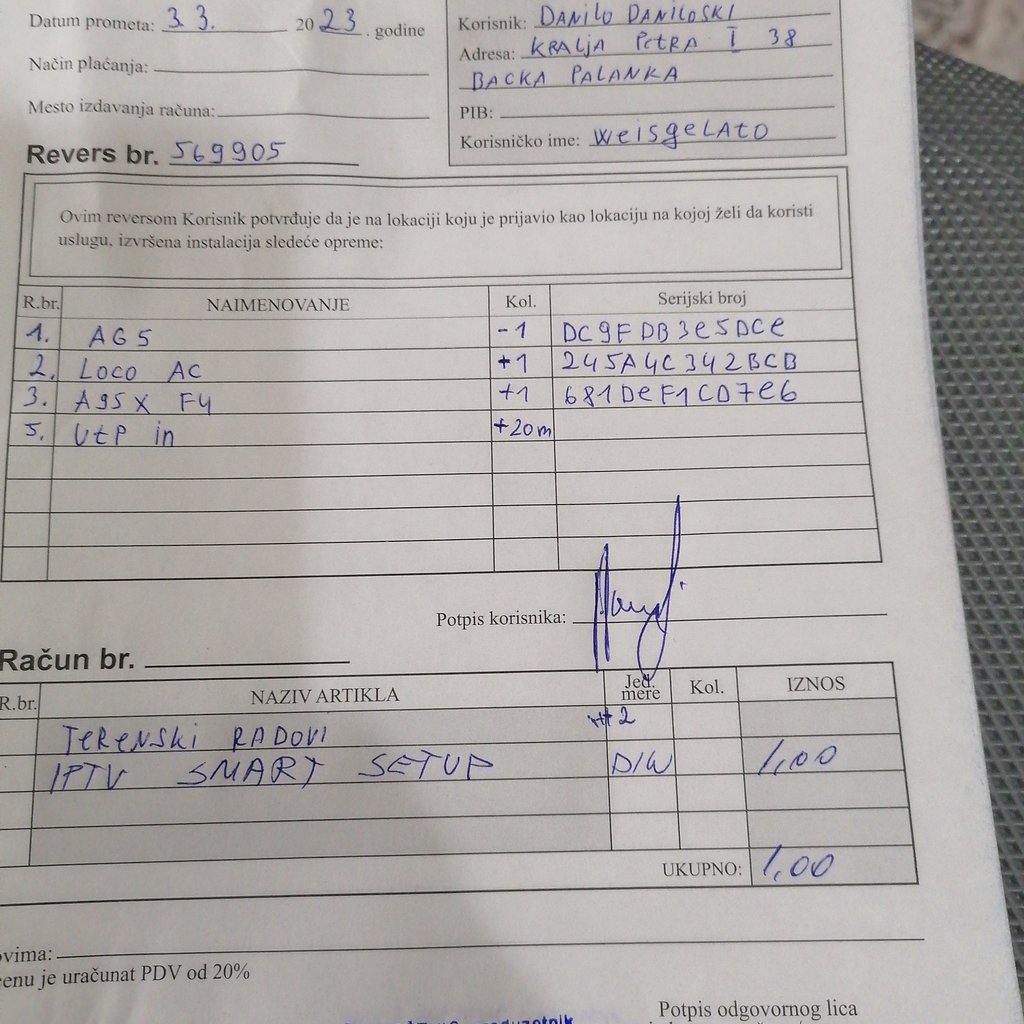 Datum prometa: 3.3. 2023. godine
Način plaćanja:
Mesto izdavanja računa:
Revers br. 569905
Korisnik: DANILO DANILOSKI
Adresa: KRALJA PETRA I 38
BACKA PALANKA
PIB:
Korisničko ime: WeisgeLATO
Ovim reversom Korisnik potvrđuje da je na lokaciji koju je prijavio kao lokaciju na kojoj želi da koristi
uslugu, izvršena instalacija sledeće opreme:
R.br. NAIMENOVANJE Kol. Serijski broj
1. AG5 -1 DC9FDB3e5DCe
2. LOCO AC +1 245A4C342BCB
3. A95X F4 +1 681DeF1CD7e6
5. UtP in +20m
Potpis korisnika:
Račun br.
R.br. NAZIV ARTIKLA Jed. mere Kol. IZNOS
TeRenSKi RADOVI 2
IPTV SMART SETUP 1,00
UKUPNO: 1,00
ovima:
enu je uračunat PDV od 20%
Potpis odgovornog lica